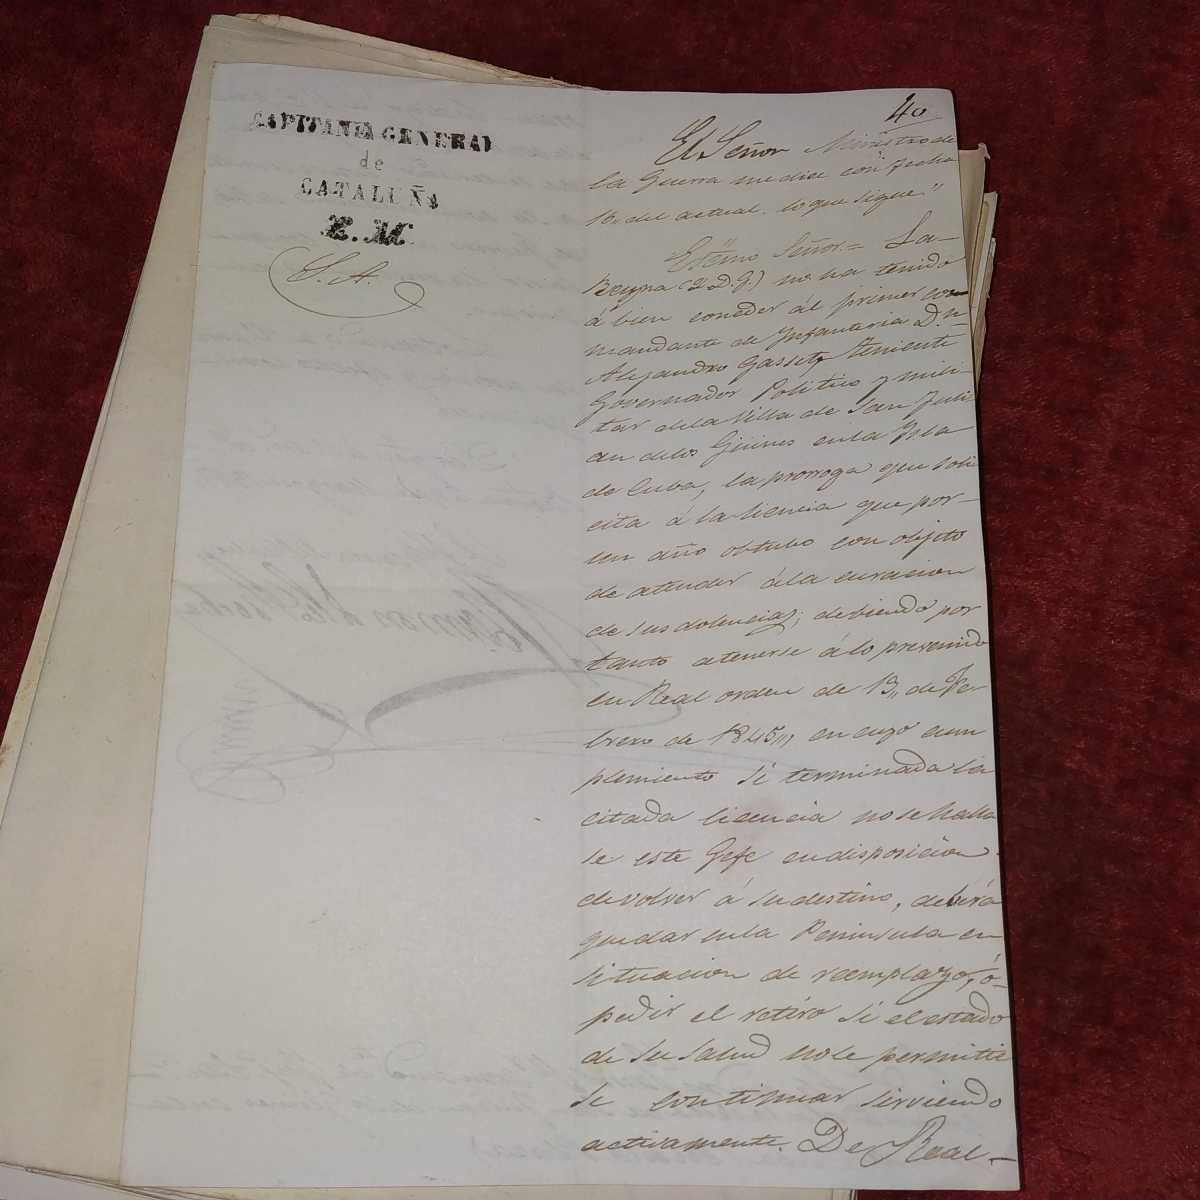 CAPITANIA GENERAL
de
CATALUÑA
E. M.
S. A.
40
El Señor Ministro de
la Guerra me dice con fecha
16,, del actual lo que sigue."
Exc̃mo Señor.= La-
Reyna (Q. D. G.) no ha tenido
á bien conceder ál primer co-
mandante de Infanteria D.n
Alejandro Gasset teniente
Governador Politico y mili-
tar dela Villa de San Juli-
an delos Güines en la Isla
de Cuba, la prorroga que soli-
cita á la licencia que por-
un año obtubo con objeto
de atender á la curacion
de sus dolencias; debiendo por
tanto atenerse á lo prevenido
en Real orden de 13,, de Fe-
brero de 1845,,, en cuyo cum
plimiento si terminada la
citada licencia no se halla
se este Gefe en disposicion
de volver á su destino, deberá
quedar en la Peninsula en
situacion de reemplazo, ó-
pedir el retiro si el estado
de su salud no le permitie
se continuar sirviendo
activamente. De Real-